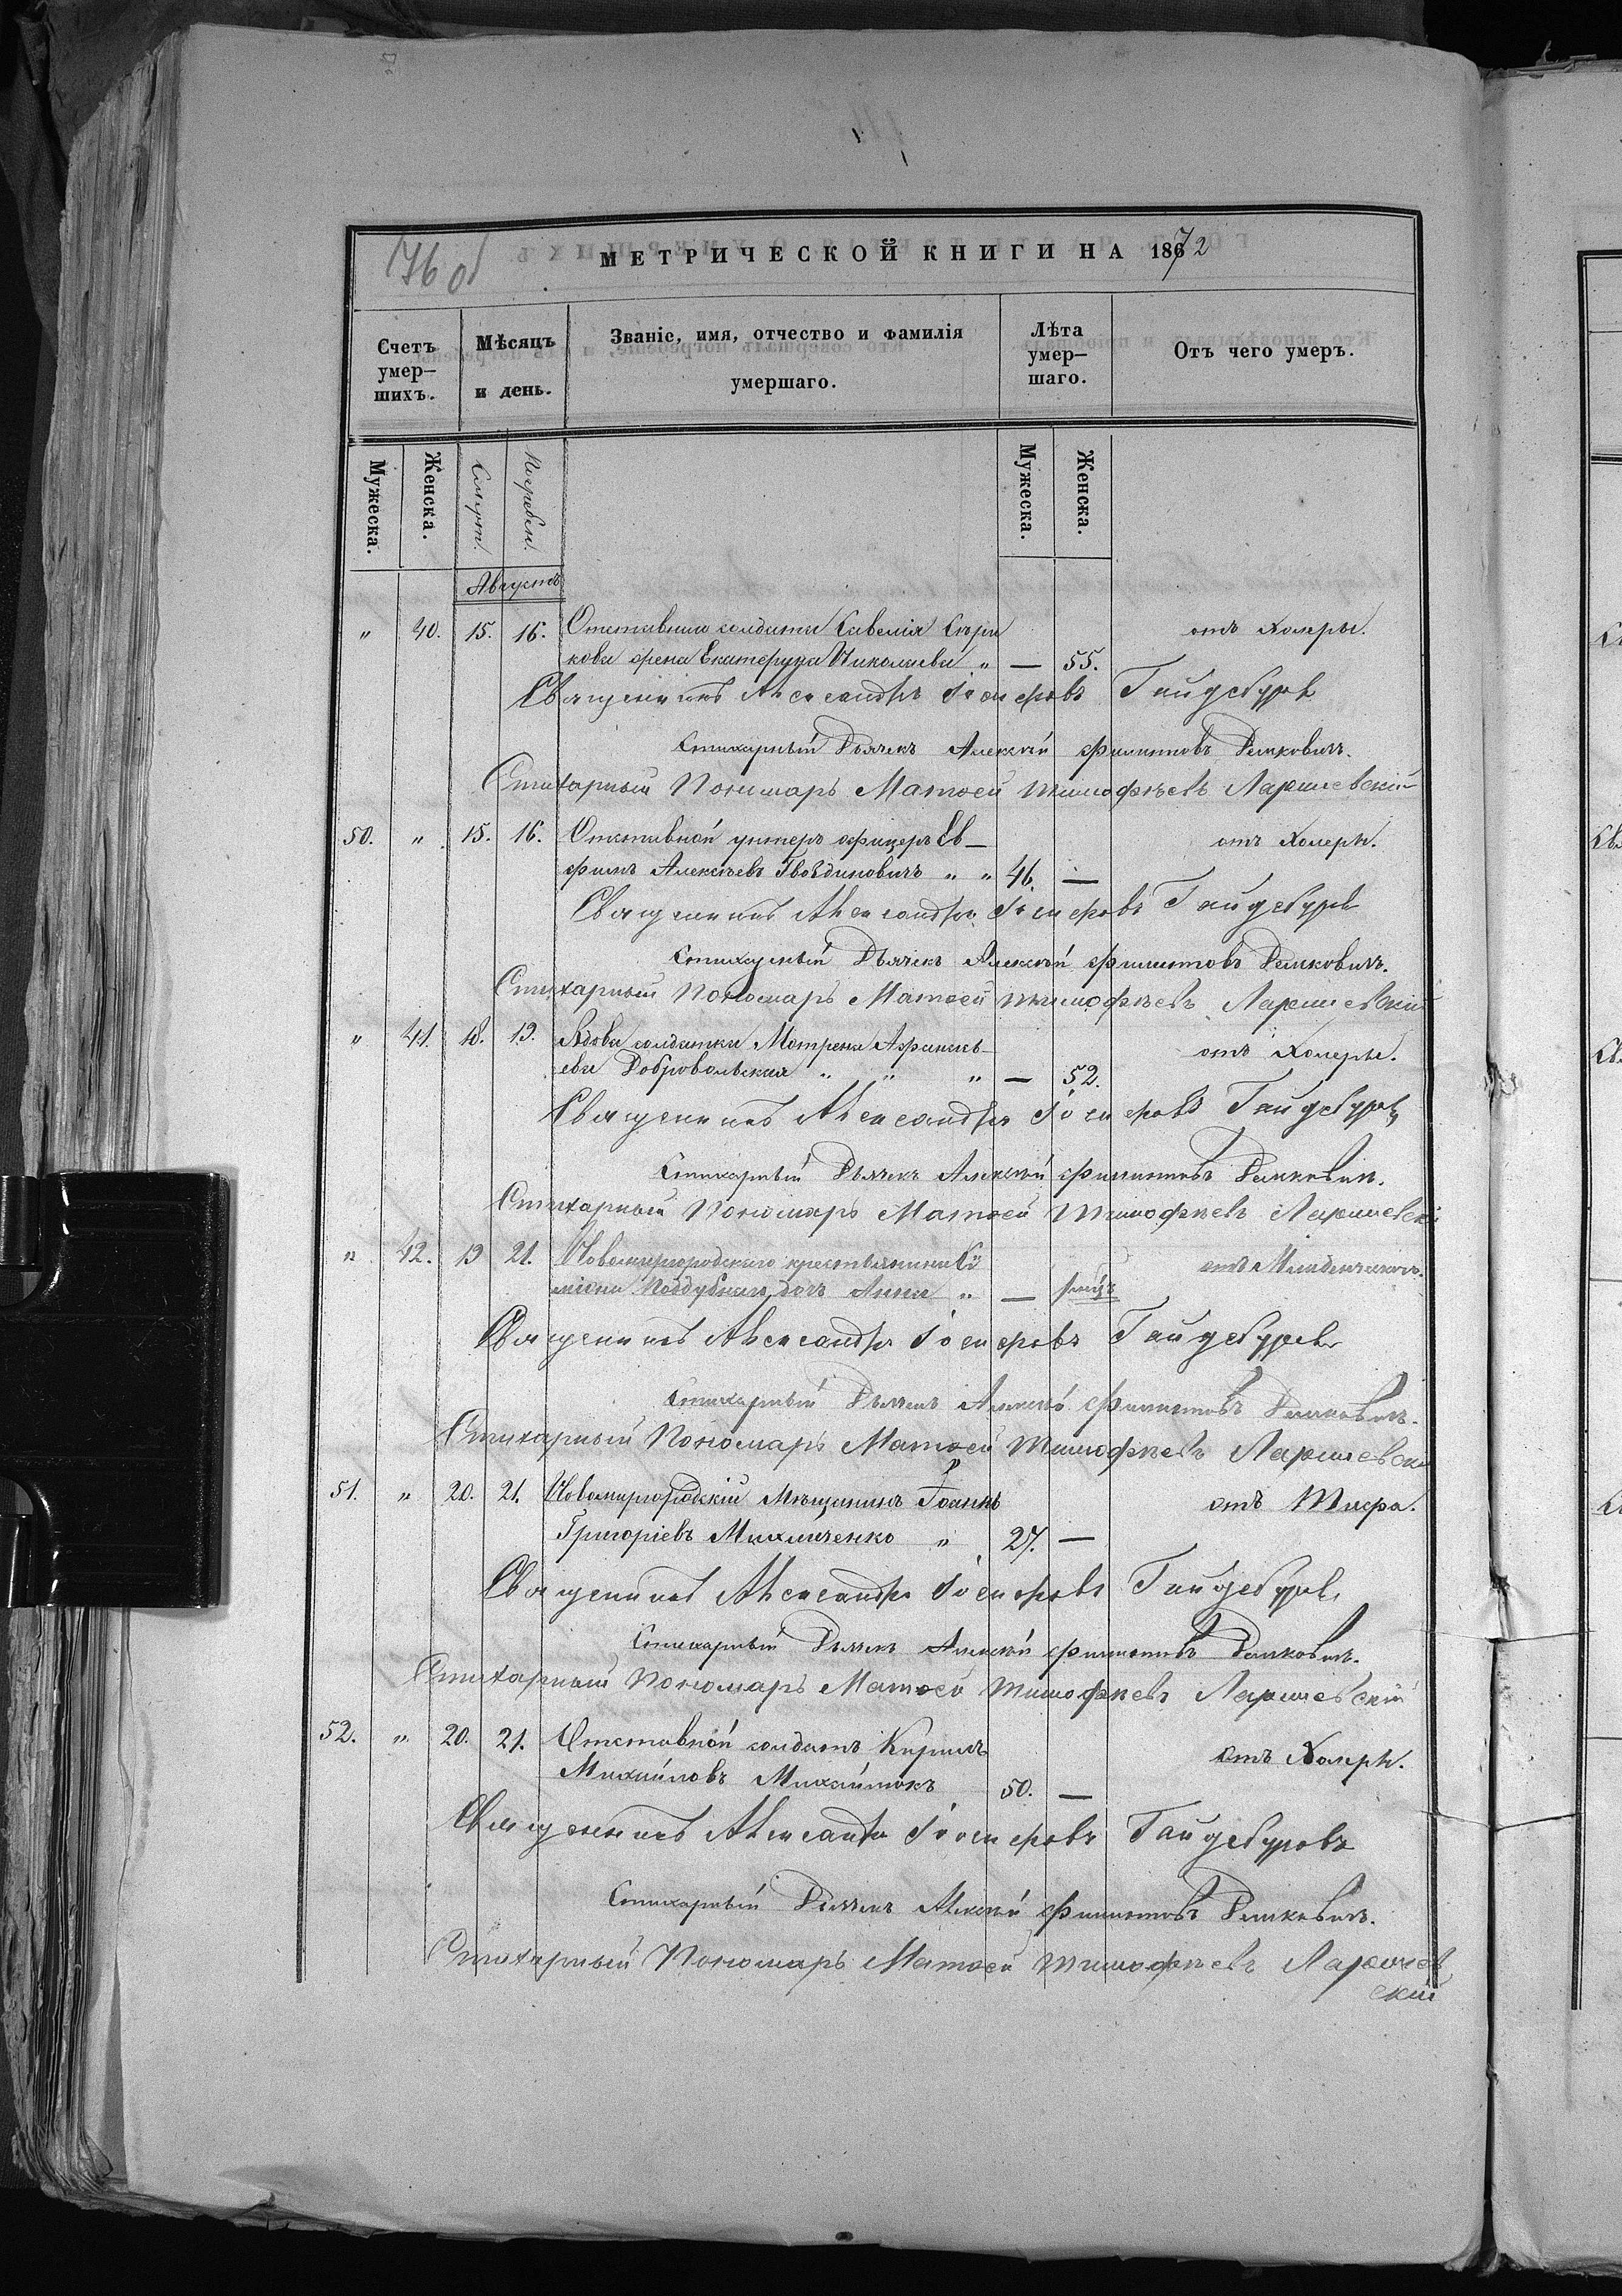 76 об
МЕТРИЧЕСКОЙ КНИГИ НА 1872
Счетъ умер- шихъ.
Мѣсяцъ и день.
Званіе, имя, отчество и фамилія умершаго.
Лѣта умер- шаго.
Отъ чего умеръ.
Мужеска. Женска. Смерт. Погребен. Мужеска. Женска.
Августъ
" 40. 15. 16. Отставнаго солдата Савелія отъ холеры.
кова жена Екатерина Николаева " — 55.
Священникъ Александръ Іосифовъ Гайдебуровъ
Стихарный Дьячекъ Алексѣй Филиповъ Демковичъ.
Стихарный Пономарь Матѳей Тимофѣевъ Ларшевскій
50. " 15. 16. Отставной унтеръ офицеръ Ев- отъ Холеры.
фимъ Алексѣевъ Гвоздиновичъ " " 46. —
Священникъ Александръ Іосифовъ Гайдебуровъ
Стихарный Дьячекъ Алексѣй Филиповъ Демковичъ.
Стихарный Пономарь Матѳей Тимофѣевъ Ларшевскій
" 41. 18. 19. Вдова солдатка Мотрена Афанась- отъ Холеры.
ева Добровольская " " " — 52.
Священникъ Александръ Іосифовъ Гайдебуровъ
Стихарный Дьячекъ Алексѣй Филиповъ Демковичъ.
Стихарный Пономарь Матѳей Тимофѣевъ Ларшевскій
" 42. 19 21. Новомиргородскаго крестьянина Си отъ Младенческ.
міона Поддубнаго дочь Анна " —
Священникъ Александръ Іосифовъ Гайдебуровъ
Стихарный Дьячекъ Алексѣй Филиповъ Демковичъ.
Стихарный Пономарь Матѳей Тимофѣевъ Ларшевскій
51. " 20. 21. Новомиргородскій Мѣщанинъ Іоаннъ отъ Тифа.
Григоріевъ Михличенко " 27. —
Священникъ Александръ Іосифовъ Гайдебуровъ
Стихарный Дьячекъ Алексѣй Филиповъ Демковичъ.
Стихарный Пономарь Матѳей Тимофѣевъ Ларшевскій
52. " 20. 21. Отставной солдатъ Кирилъ отъ Холеры.
Михайловъ Михайлюкъ 50. —
Священникъ Александръ Іосифовъ Гайдебуровъ
Стихарный Дьячекъ Алексѣй Филиповъ Демковичъ.
Стихарный Пономарь Матѳей Тимофѣевъ Ларшев
скій